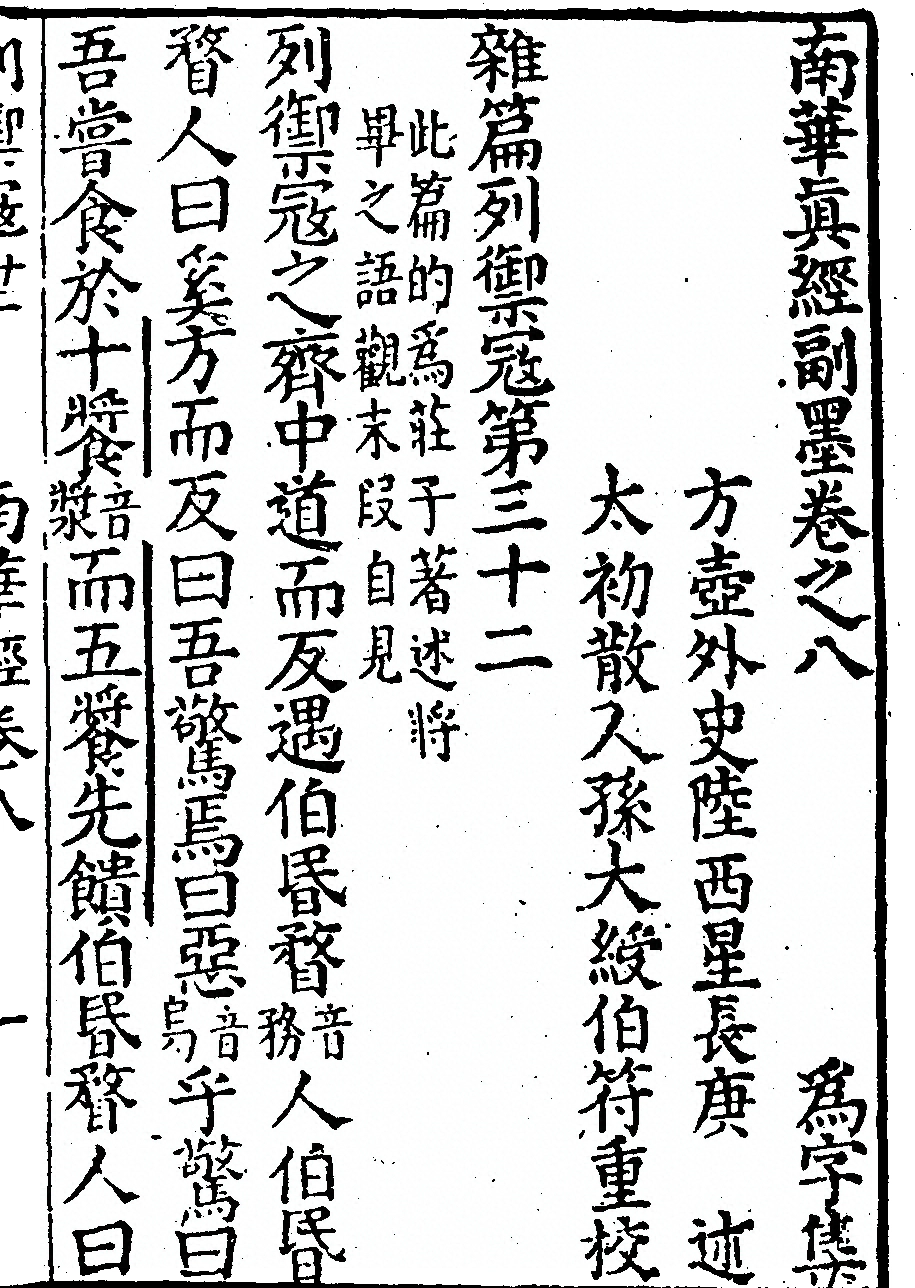 南華眞經副墨卷之八 爲字集
方壺外史陸西星長庚 述
太初散人孫大綬伯符重校
雜篇列禦寇第三十二
此篇的爲莊子著述將
畢之語觀末段自見
列禦寇之齊中道而反遇伯昬瞀音務人伯昬
瞀人曰奚方而反曰吾驚焉曰惡音烏乎驚曰
吾嘗食於十饗音漿而五饗先饋伯昬瞀人曰
列禦寇卅二 南華經卷八 一